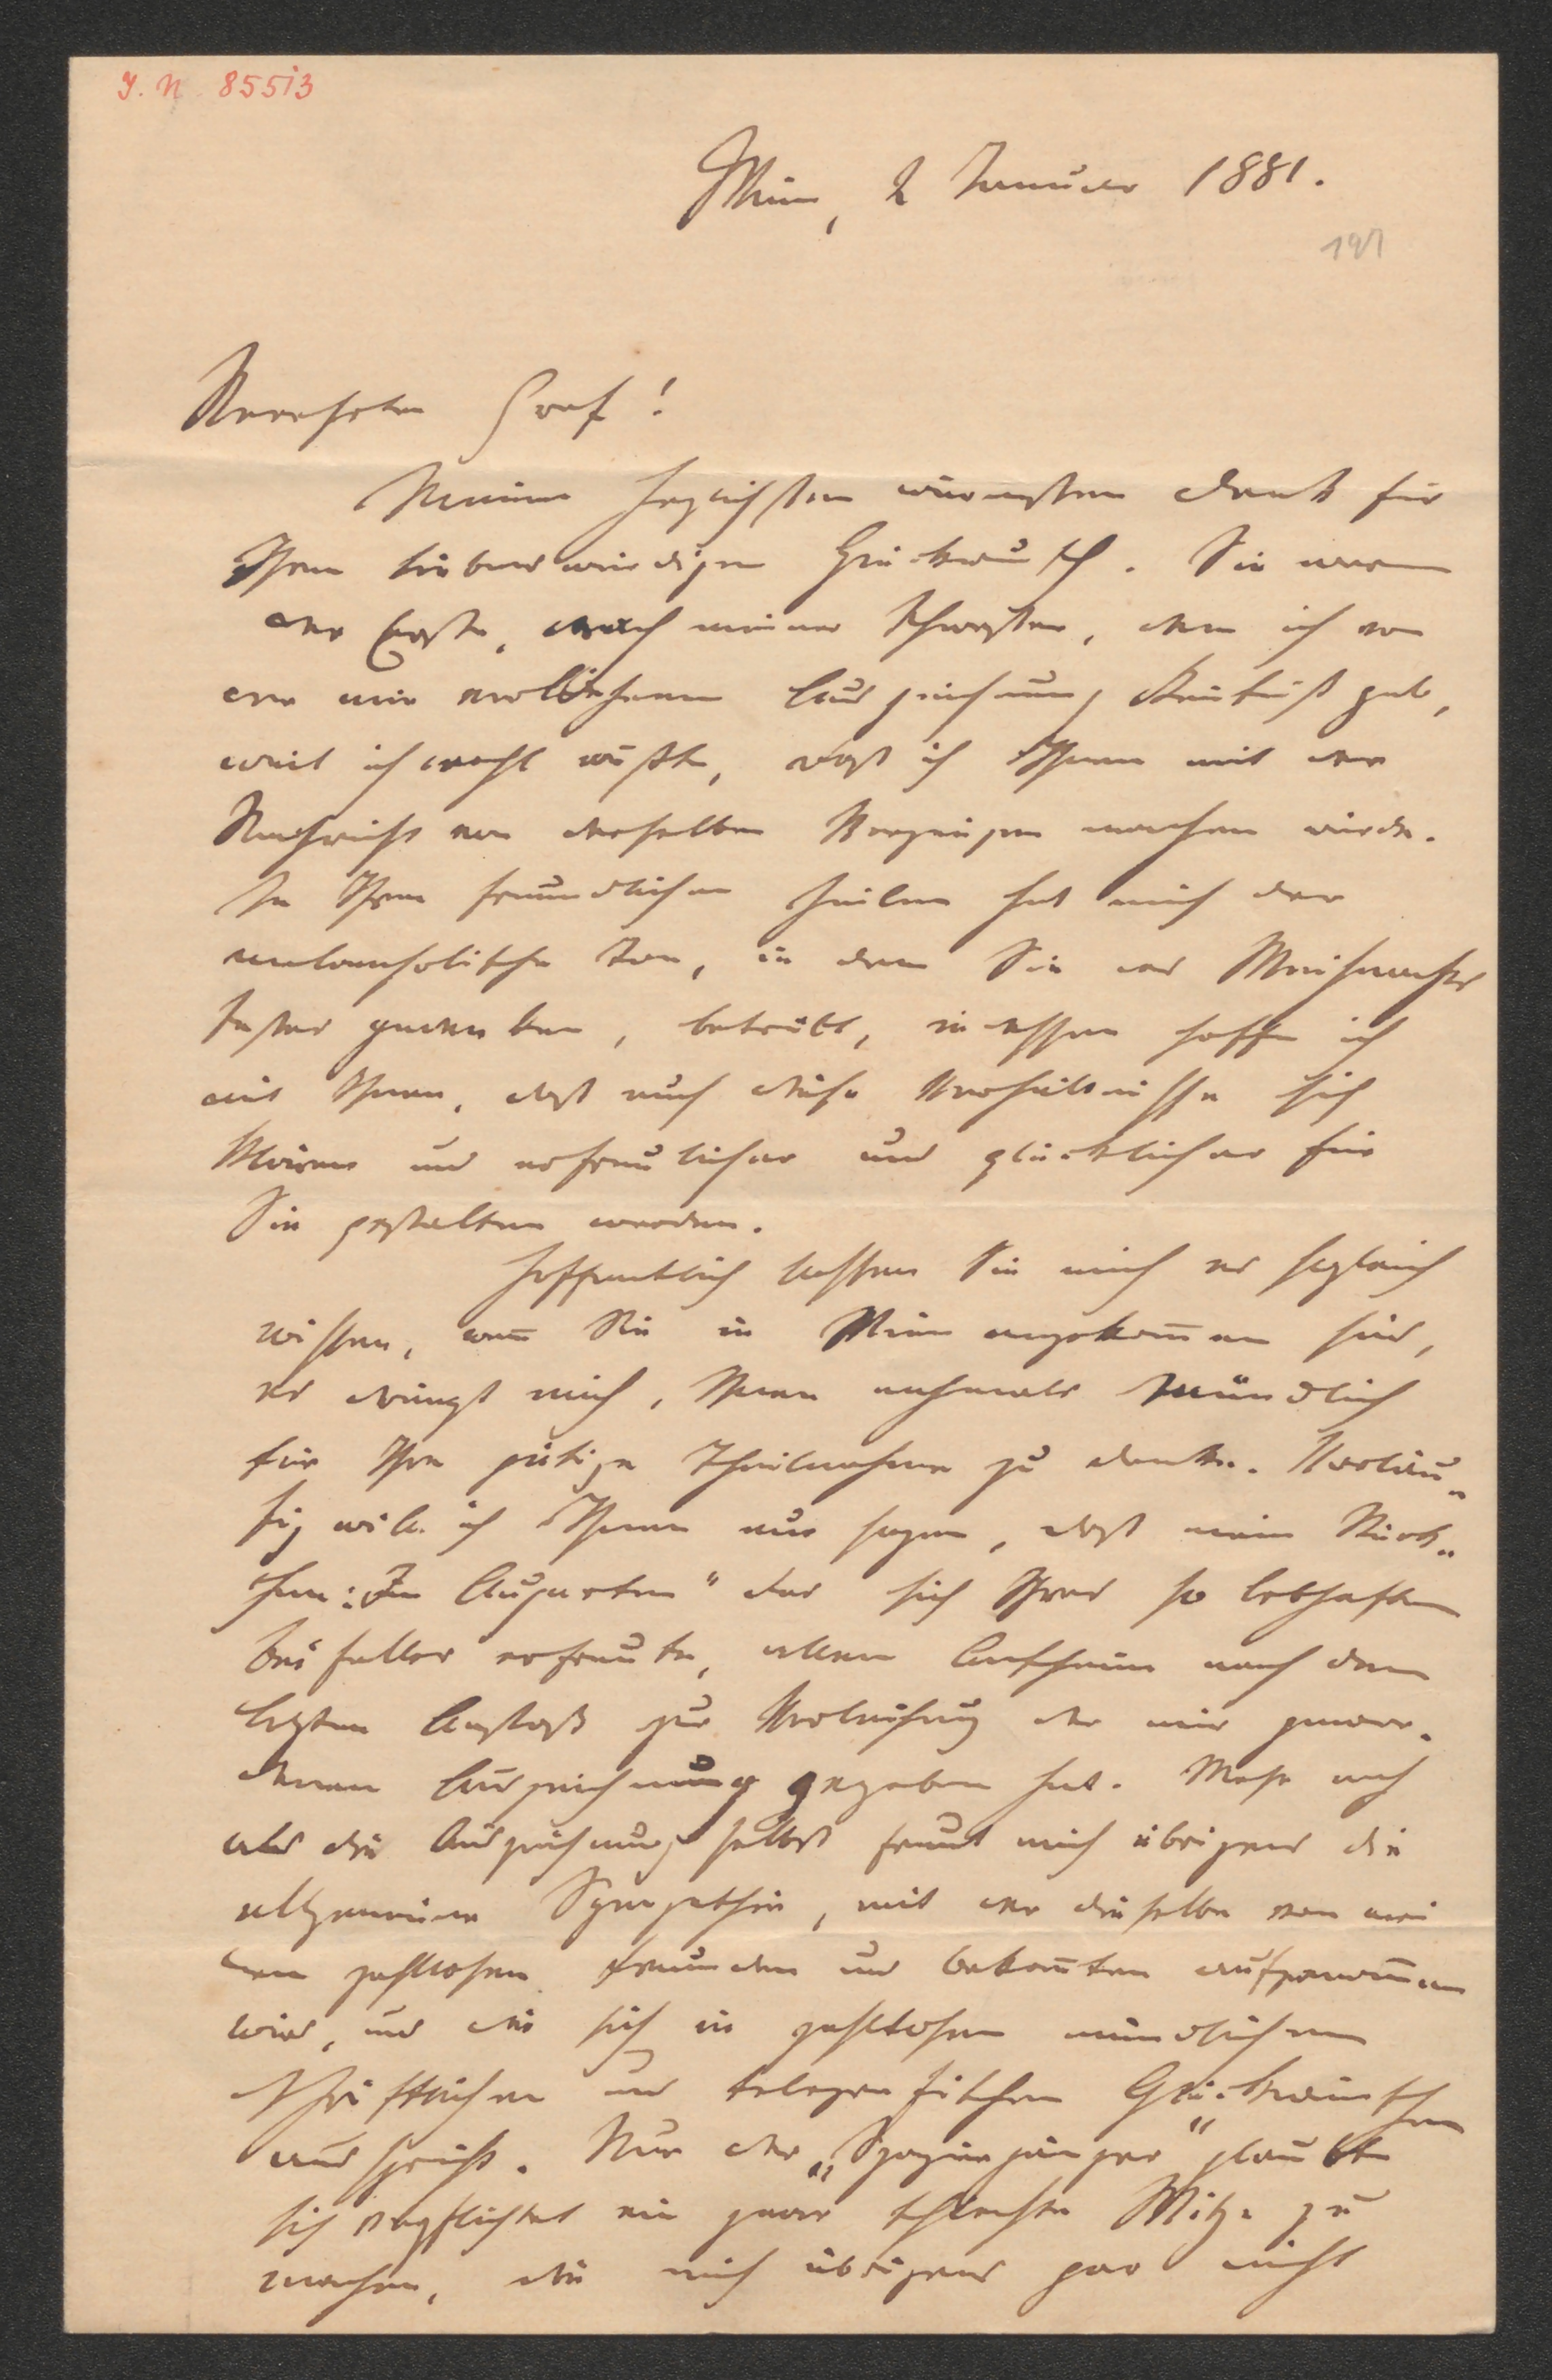 J. N. 85513
Wien, 2 Januar 1881.
191
Verehrter Graf!
Meinen herzlichsten wärmsten Dank für
Ihren liebenswürdigen Glückwunsch. Sie waren
der Erste, nach meiner Schwester, dem ich von
der mir verliehenen Auszeichnung Kentniß gab,
weil ich recht wußte, daß ich Ihnen mit der
Nachricht von derselben Vergnügen machen würde.
In Ihren freundlichen Zeilen hat mich der
melancholische Ton, in dem Sie des Weihnachts
festes gedenken, betrübt, indessen hoffe ich
mit Ihnen, daß auch diese Verhältnisse sich
klären und erfreulicher und glücklicher für
Sie gestalten werden.
Hoffentlich lassen Sie mich es sogleich
wissen, wen̄ Sie in Wien angekom̄en sind,
es drängt mich, Ihnen nochmals mündlich
für Ihre gütige Theilnahme zu danken. Vorläu„
fig will ich Ihnen nur sagen, daß mein
"Im Augarten" das sich Ihres so lebhaften
Beifalles erfreute, allem Anschein nach den
letzten Anstoß zur Verleihung der mir gewor„
denen Auszeichnung gegeben hat. Mehr noch
als die Auszeichnung selbst freut mich übrigens die
allgemeine Sympathie, mit der dieselbe von mei
nen zahllosen Freunden und Bekan̄ten aufgenom̄en
wird, und die sich in zahllosen mündlichen
schriftlichen und telegrafischen Glückwünschen
ausspricht. Nur der „Spaziergänger" glaubte
sich verpflichtet ein paar schlechte Witze zu
machen, die mich übrigens gar nicht